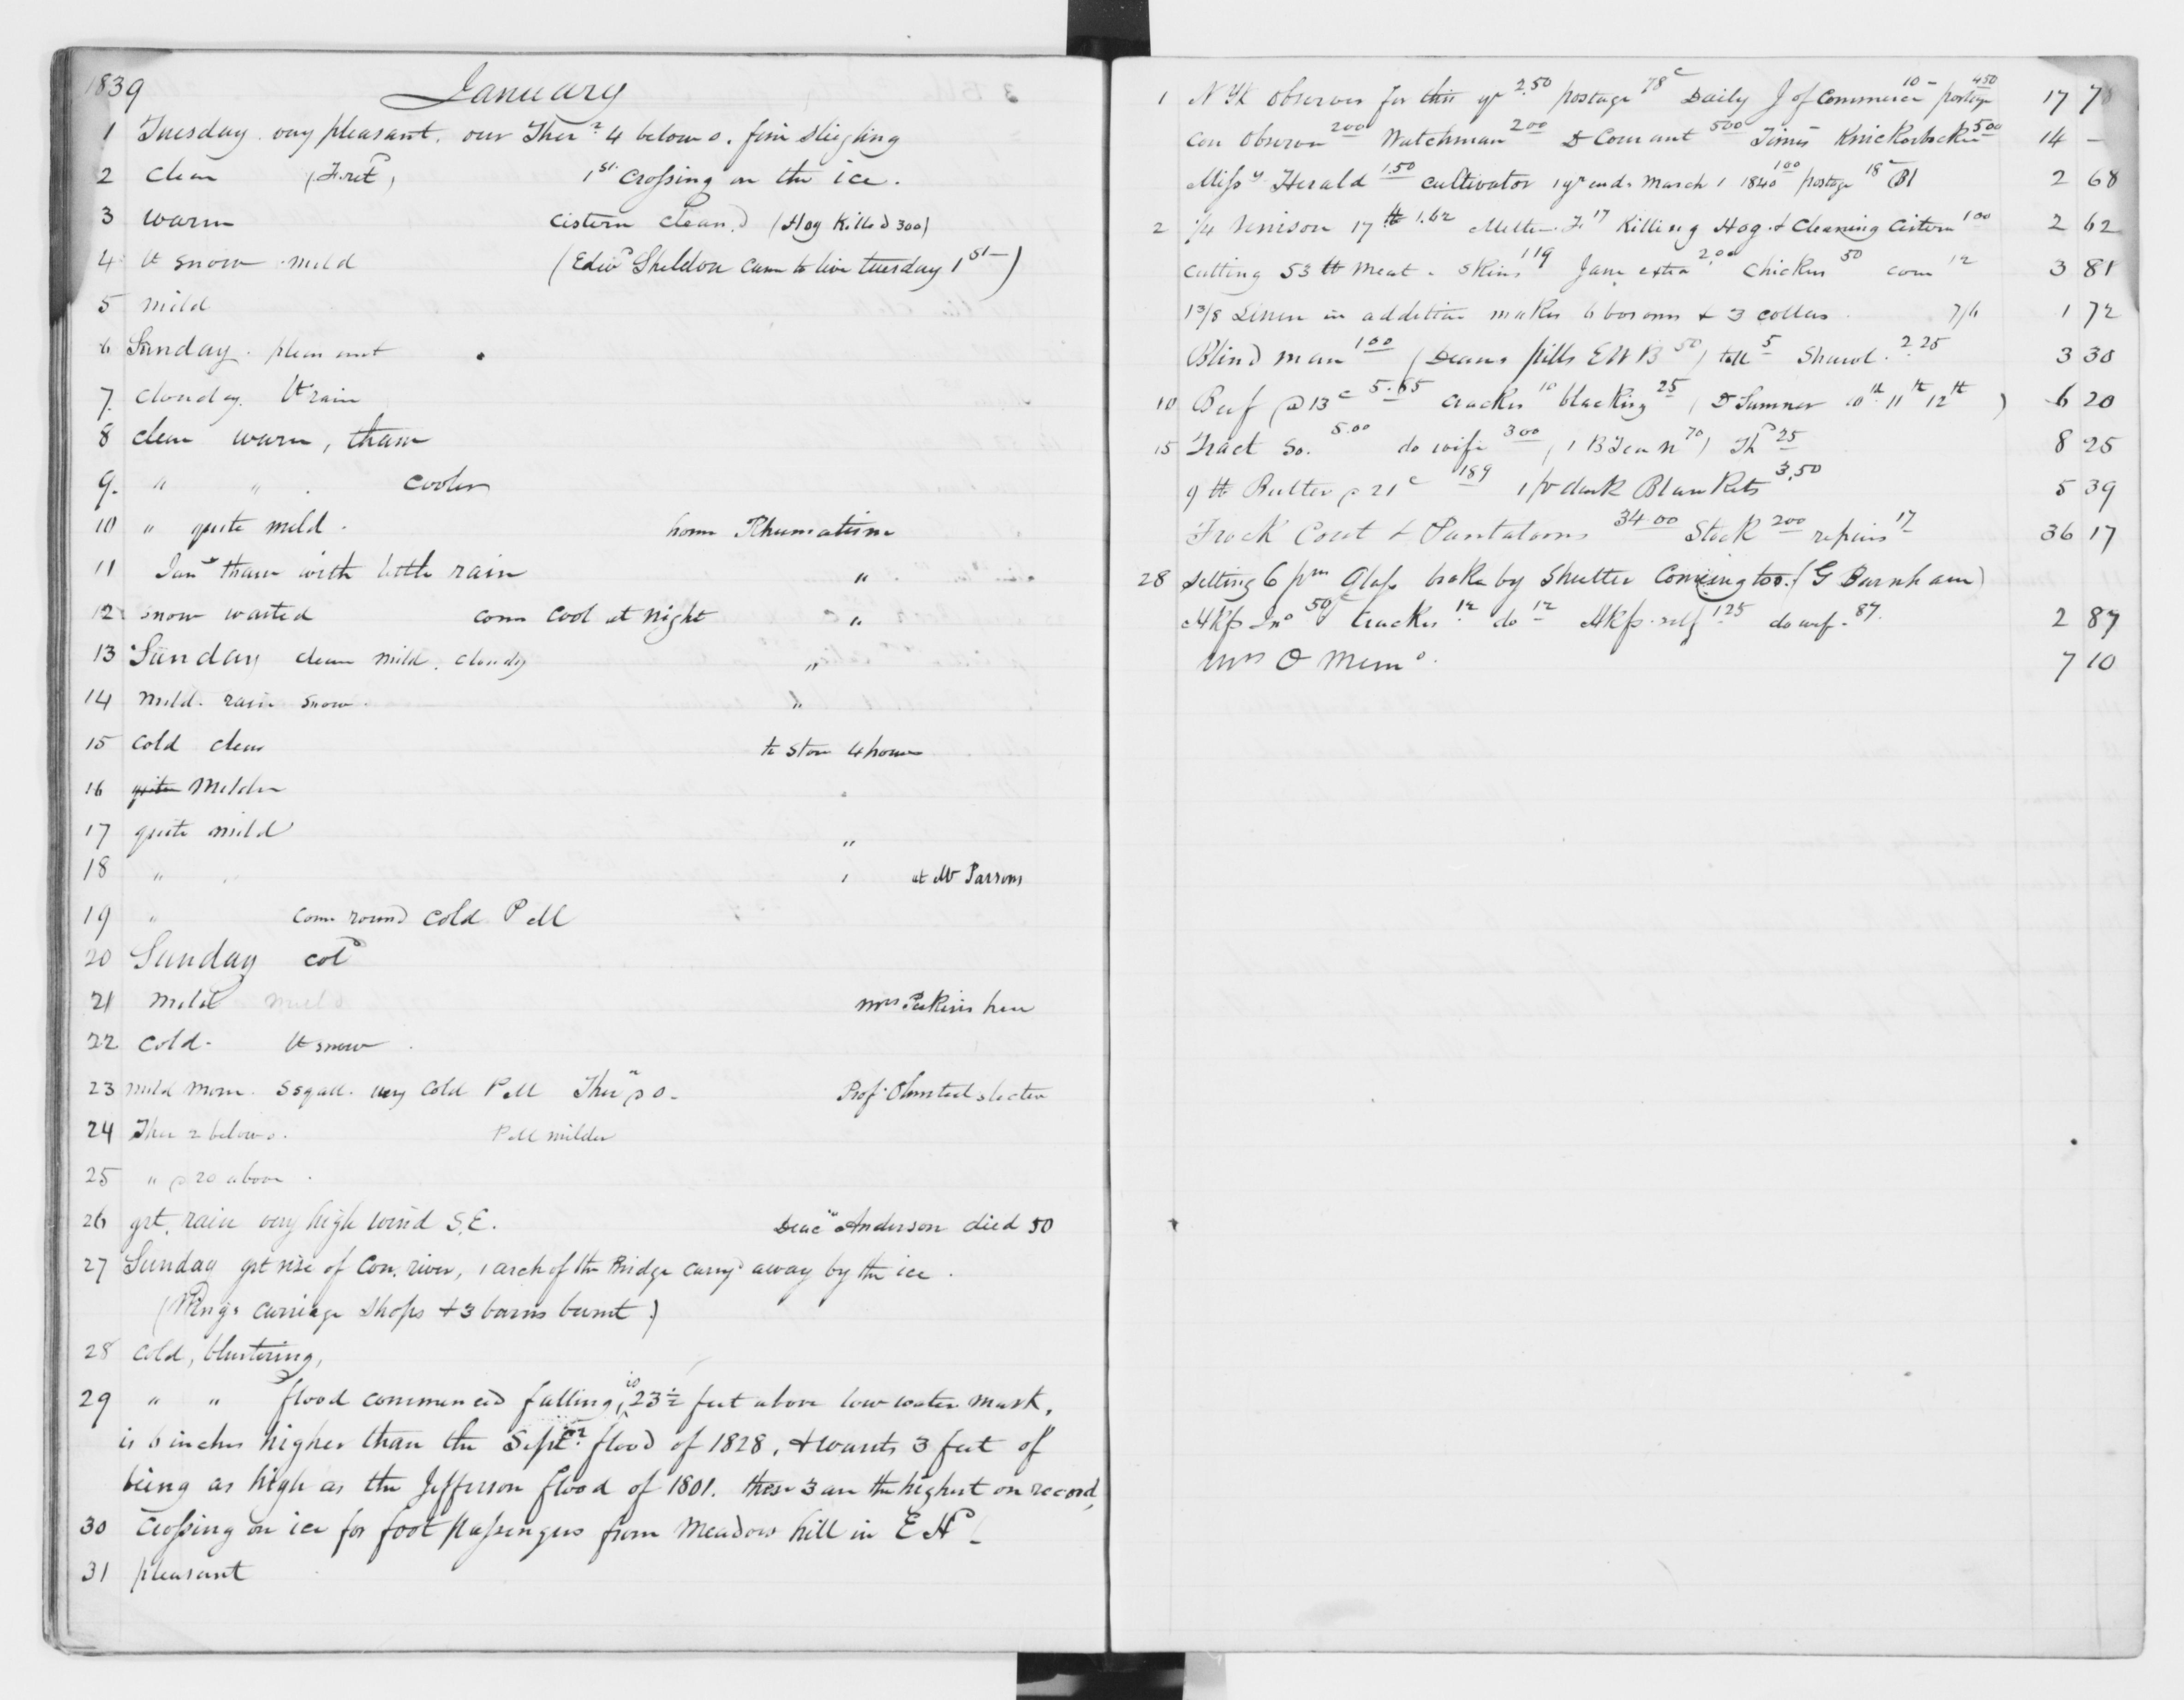 1839 January
1 Tuesday. very pleasant. our Ther 4 below 0. fine sleighing
2 Clear 1st Crossing on the ice.
3 warm cistern cleand (Hog Killed 300)
4 lt snow mild (Edwd Sheldon came to live tuesday 1st)
5 mild
6 Sunday. pleasant
7 cloudy. lt rain
8 clear warm, thaw
9 " " . cooler
10 " quite mild. home Rhumatism
11 Jany thaw with little rain "
12 snow wasted come cool at night "
13 Sunday clear mild. cloudy "
14 mild. rain snow. "
15 cold clear to store 4 hours
16 quite milder "
17 quite mild "
18 " " " at Mr Parsons
19 " come round cold P M
20 Sunday cold
21 mild mild Mrs Perkins here
22 Cold. lt snow
23 mild morn. squall. very cold P M Ther @ 0. Prof. Olmsted
24 Ther 2 below 0. P M milder
25 " @ 20 above.
26 grt. rain very high wind S.E. Deacn Anderson died 50
27 Sunday grt rise of Con. river, 1 arch of the Bridge carryd away by the ice.
carriage shops & 3 barns burnt)
28 cold, blustering,
29 " " flood commenced falling, is 23½ feet above low water mark,
is 6 inches higher than the Septr flood of 1828, & wants 3 feet of
being as high as the Jefferson flood of 1801. these 3 are the highest on record,
30 Crossing on ice for foot passengers from Meadow hill in E Hd
31 pleasant
1 N Yk Observer for this yr 2.50 postage 78c Daily J of Commerce 10- postage 450 17 78
Con Observer 200 Watchman 200 D Courant 500 Times Knickerbocker 500 14 -
Missy Herald 1.50 Cultivator 1 yr ends March 1 1840 100 postage 18 2 68
2 ¼ Venison 17 lb 1.62 Killing Hog & Cleaning Cistern 100 2 62
Cutting 53 lb meat. skins 119 Jane extra 2.00 Chicken 50 corn 12 3 81
13/8 Linen in addition makes 6 bosoms & 3 collars 7/6 1 72
Blind man 100 (Deans pills E W B 50) toll 5 Shawl. 2.25 3 30
10 Beef @ 13c 5.85 cracker 10 blacking 25 (Dr Sumner 10th 11th 12th) 6 20
15 Tract So. 5.00 do wife 300 25 8 25
9 lb Butter @ 21c 189 1 pr dark Blankets 3.50 5 39
Frock Coat & Pantaloons 34 00 Stock 200 repairs 17 36 17
28 Setting 6 pns Glass broke by shutter coming too. (G Barnham)
50 cracker 12 do 12 self 125 do wf. 87 2 87
Mrs O Memo. 7 10